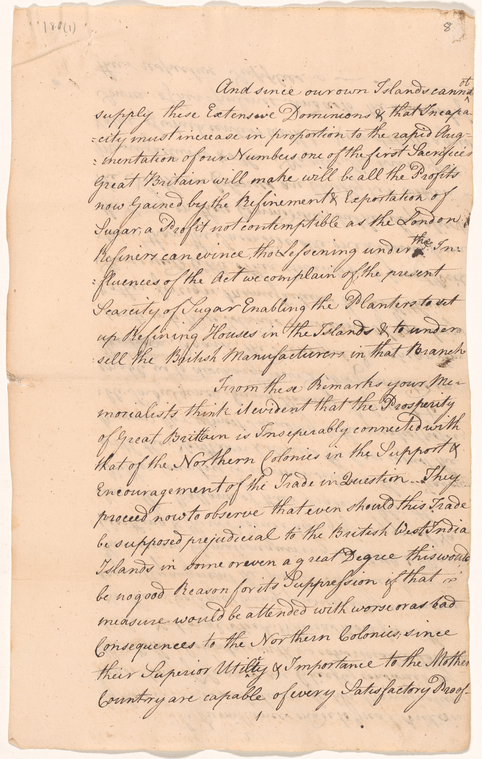 8
And since our own Islands cannot
supply these Extensive Dominions & that Incapa
=city must increase in proportion to the rapid Aug-
=mentation of our Numbers one of the first Sacrifices
Great Britain will make will be all the Profits
now Gained by the Refinement & Exportation of
Sugar, a Profit not contemptible as the London
Refiners can evince, tho Lessening under the In=
=fluences of the Act we complain of the present
Scarcity of Sugar Enabling the Planters to set
up Refining Houses in the Islands & to under
sell the British Manufacturers in that Branch
From these Remarks your Me-
morialists think it evident that the Prosperity
of Great Brittain is Inseperably connected with
that of the Northern Colonies in the Support &
Encouragement of the Trade in Question -- They
proceed now to observe that even should this Trade
be supposed prejudicial to the British West India
Islands in some or even a great Degree this would
be no good Reason for its Suppression if that
measure would be attended with worse or as bad
Consequences to the Northern Colonies, since
their Superior Utility & Importance to the Mother
Country are capable of very Satisfactory Proof-